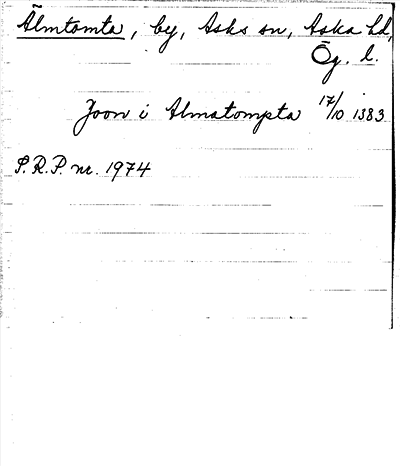 Älmtomta, by, Asks sn, Aska hd,
Ög. l.
Joon i Almatompta 17/10 1383
S.R.P. nr. 1974